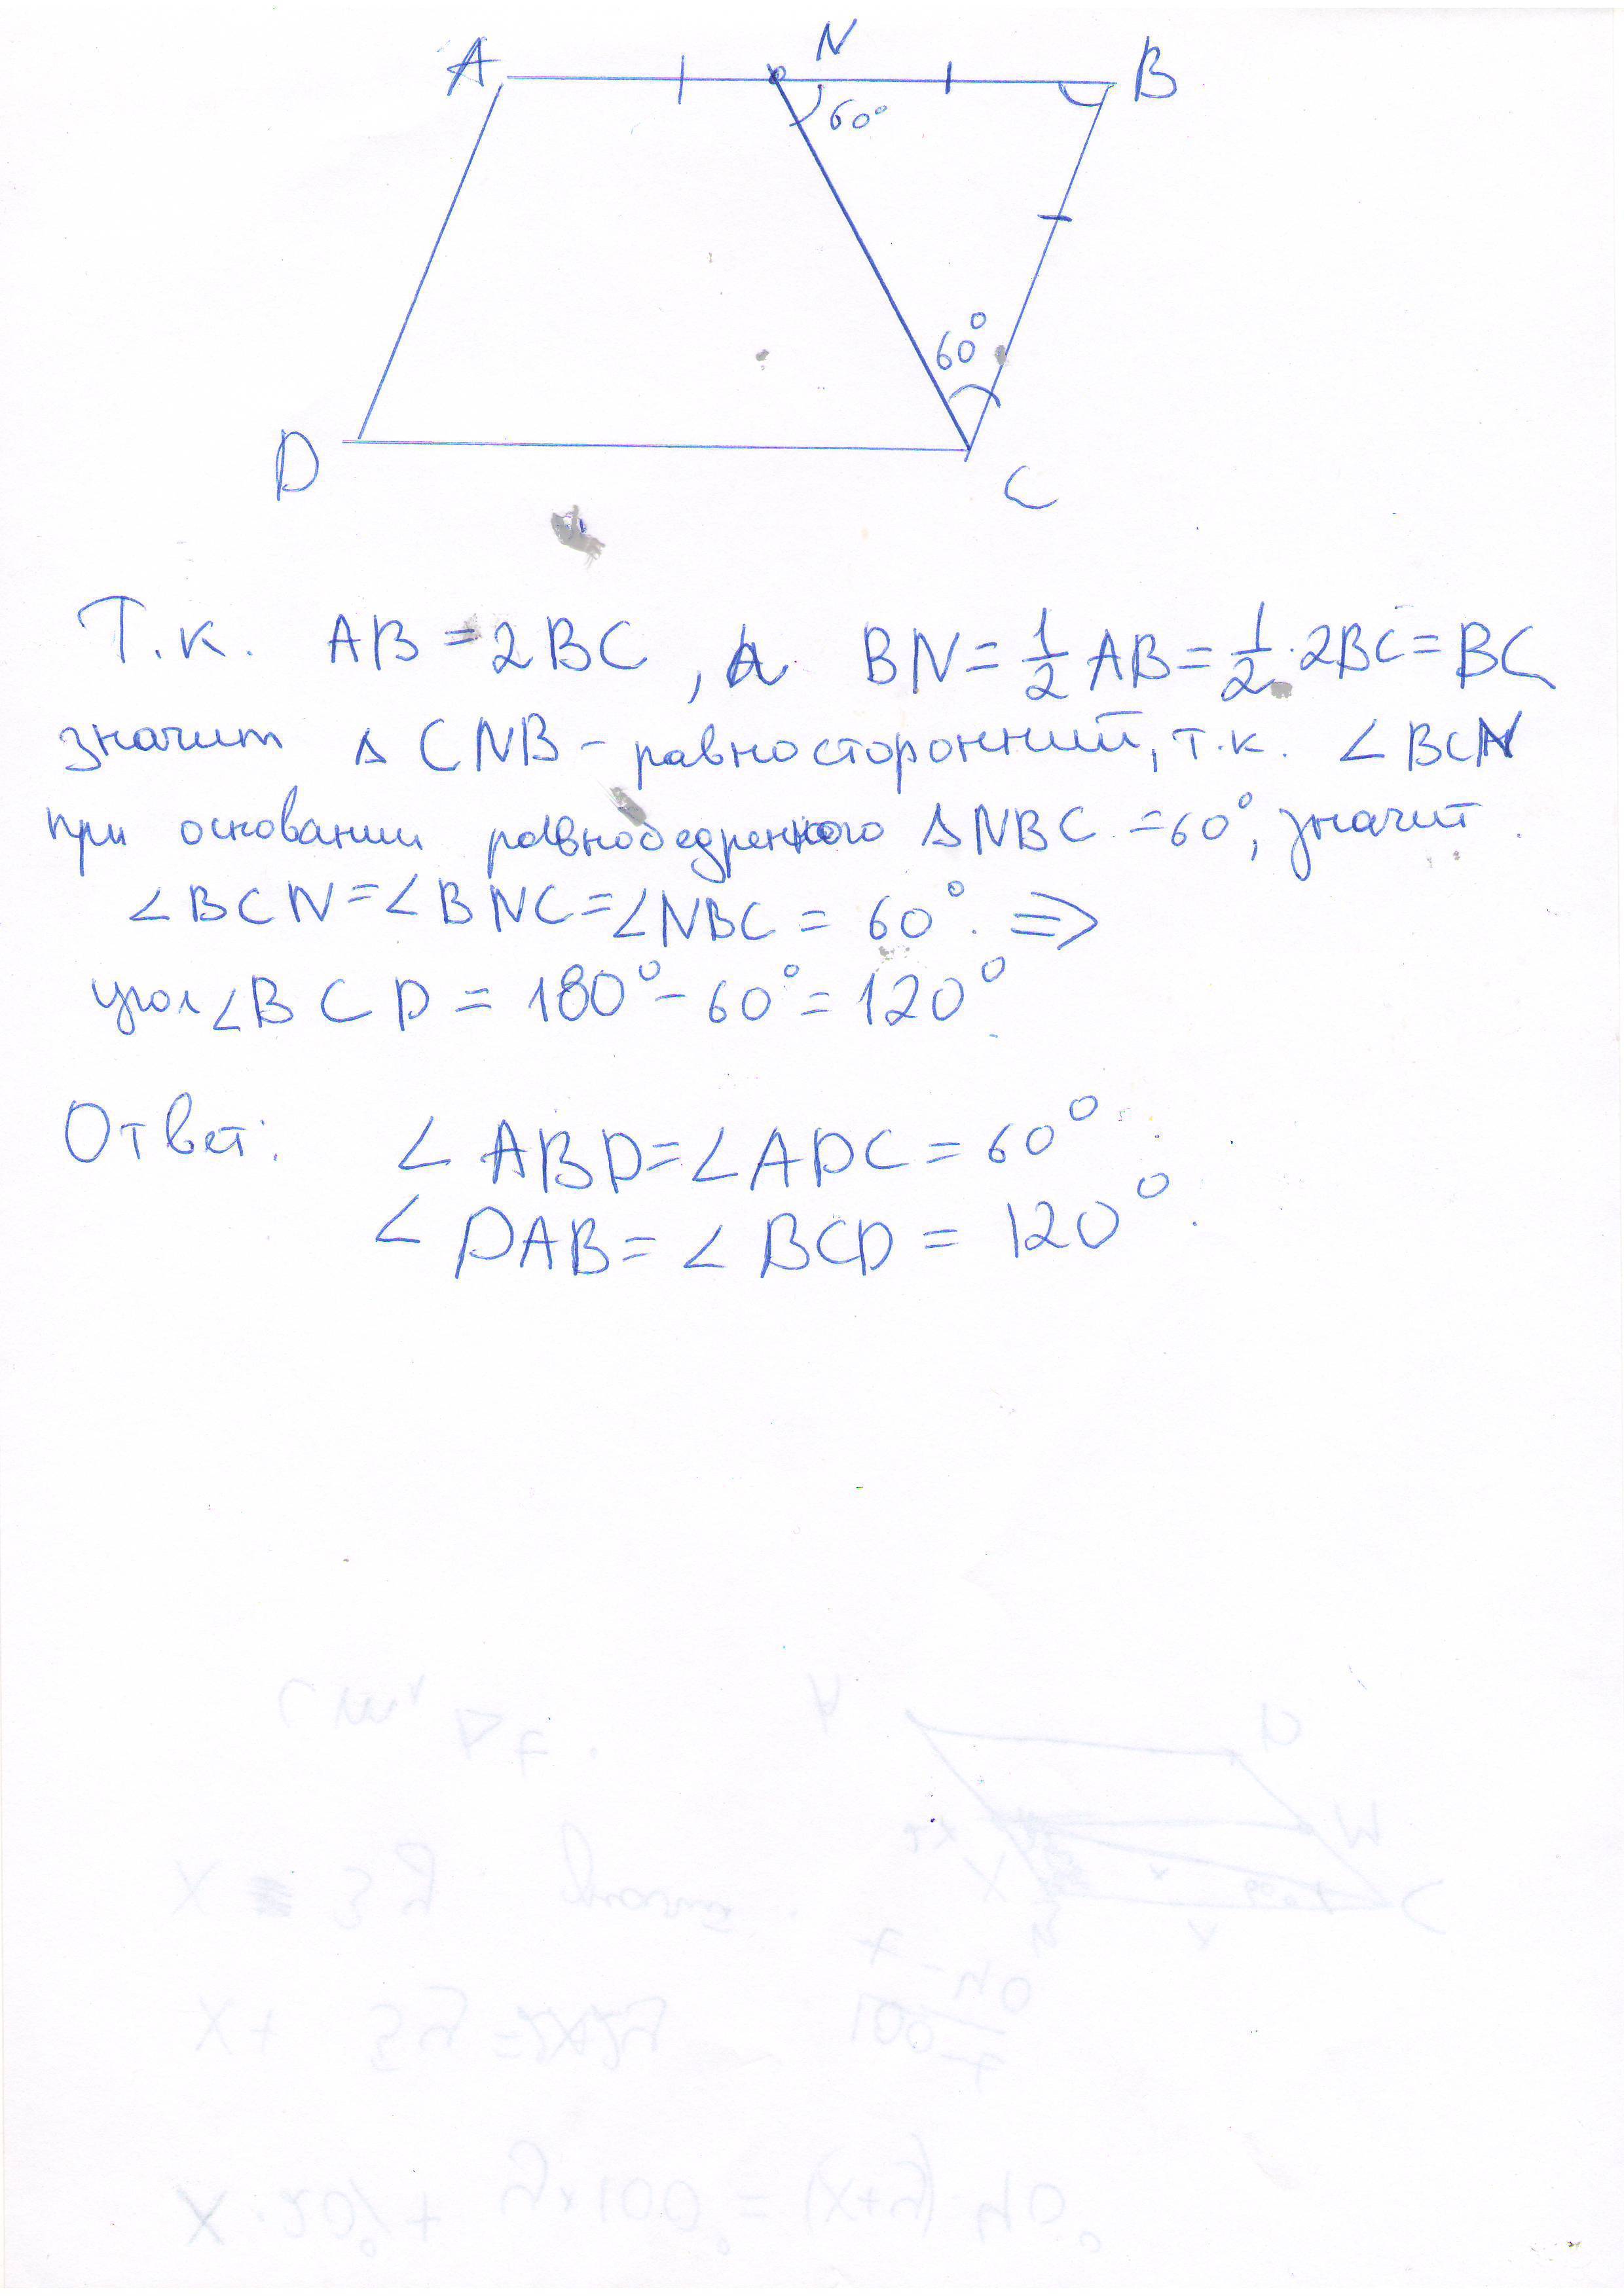 A N B
60°
60°
D C
Т.к. AB = 2BC, а BN = 1/2 AB = 1/2 · 2BC = BC
значит Δ CNB - равносторонний, т.к. ∠BCN
при основании равнобедренного ΔNBC = 60°, значит
∠BCN = ∠BNC = ∠NBC = 60°. ⇒
угол ∠BCD = 180° - 60° = 120°.
Ответ: ∠ABD = ∠ADC = 60°
∠DAB = ∠BCD = 120°.